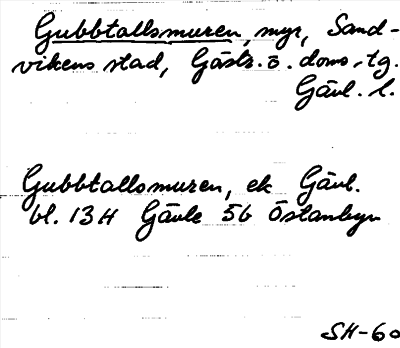 Gubbtallsmuren, myr, Sand-
vikens stad, Gästr. ö. doms.-tg.
Gävl. l.
Gubbtallsmuren, ek Gävl.
bl. 13H Gävle 5b Östanbyn
SH-60